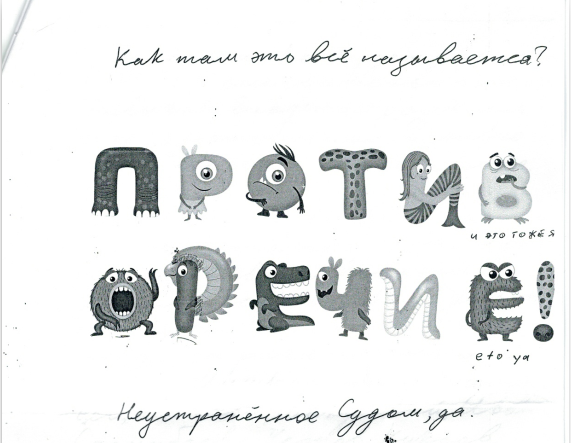 Как там это всё называется?
ПРОТИВ
и это тоже я
ОРЕЧИЕ!
eto ya
Неустранённое Судом, да.